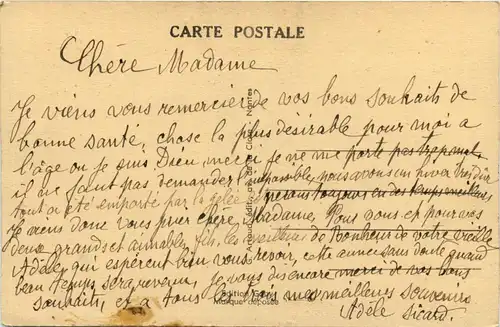 CARTE POSTALE
Chère Madame
Je viens vous remercier de vos bons souhaits de
bonne santé, chose la plus désirable pour moi a
l'âge ou je suis Dieu merci je ne me porte pas trop mal,
il ne faut pas demander l'impossible, nous avons un hiver très dur
tout a été emporté par la gelée
Je viens donc vous prier chère Madame, Pour vous et pour vos
deux grands et aimables fils, les meilleurs de Bonheur de votre vieille
Adèle, qui espèrent bien vous revoir, cette année sans doute quand
beau temps sera revenu, je vous dis encore merci de vos bons
souhaits, et a tous mes meilleurs souvenirs
Adèle Sicard.